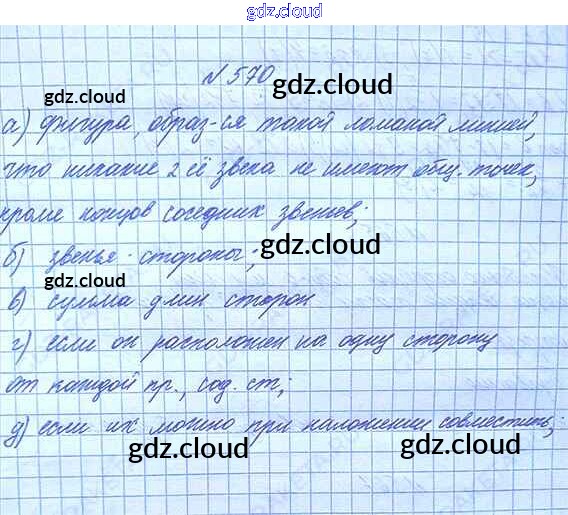 gdz.cloud
№ 570
gdz.cloud
gdz.cloud
а) фигура, образ-ся такой ломаной линией,
что никакие 2 её звена не имеют общ. точек,
кроме концов соседних звеньев;
б) звенья - стороны;
gdz.cloud
gdz.cloud
в) сумма длин сторон
г) если он расположен на одну сторону
от каждой пр., сод. ст;
gdz.cloud
д) если их можно при наложении совместить;
gdz.cloud
gdz.cloud